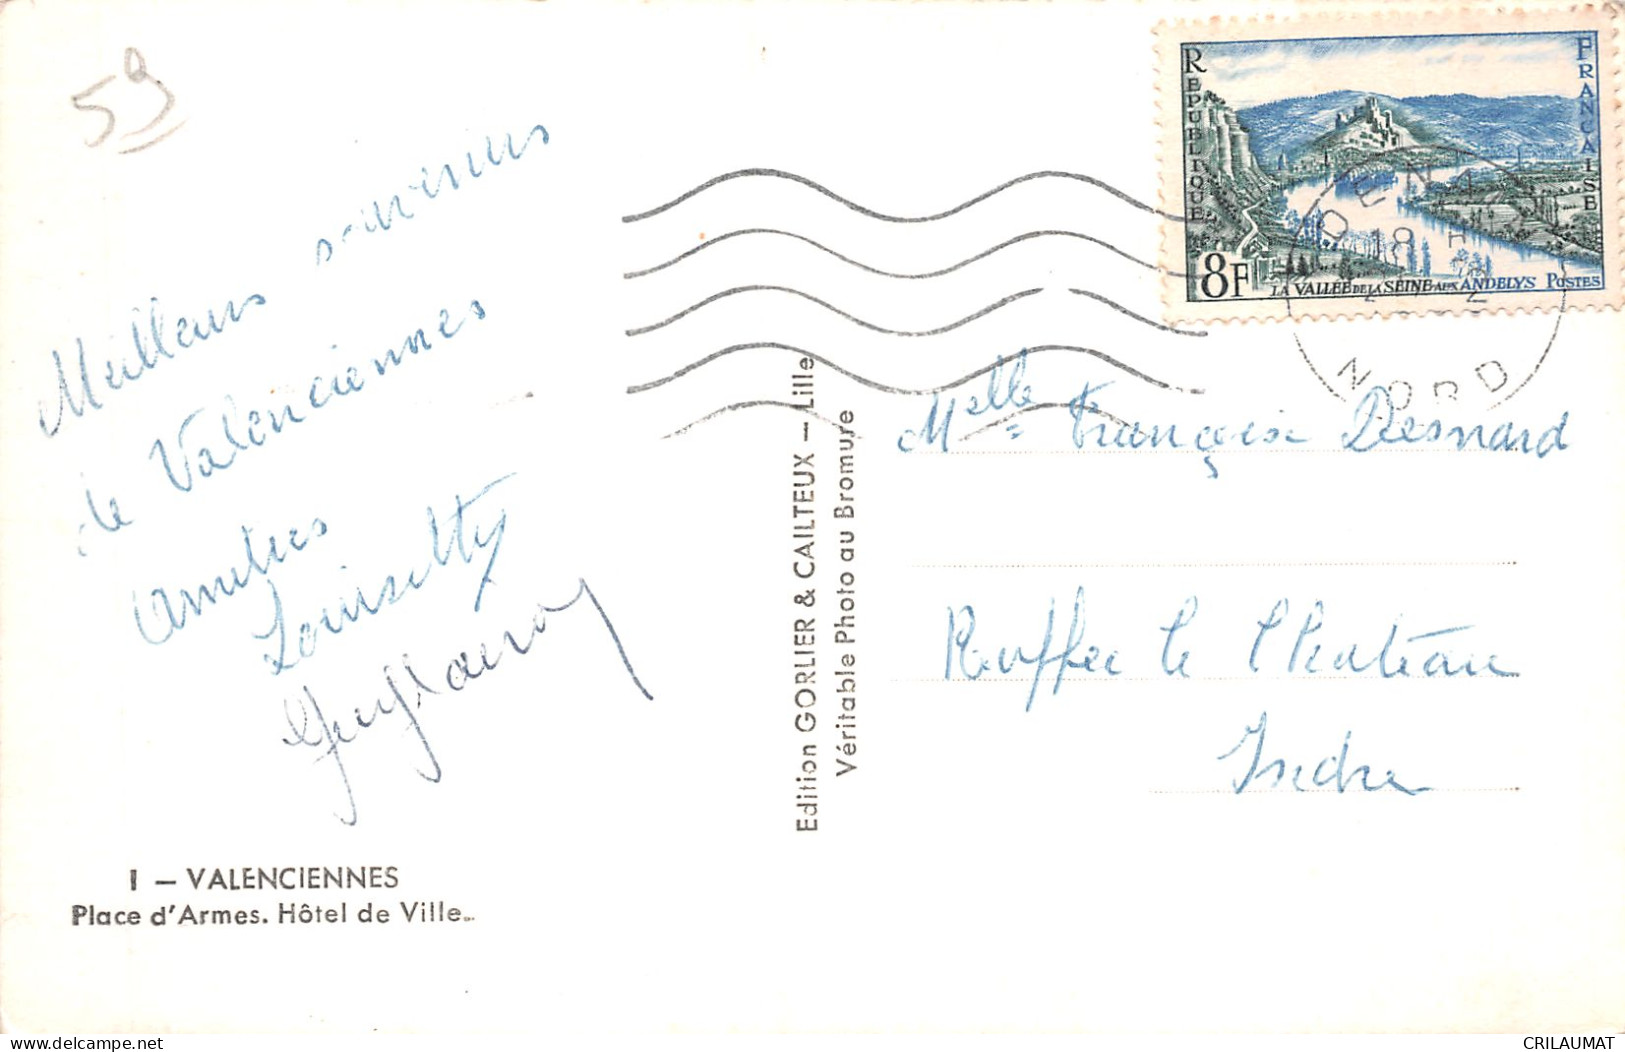 59
Meilleurs souvenirs
de Valenciennes
Amitiés
Louisetty
I — VALENCIENNES
Place d'Armes. Hôtel de Ville.
Edition GORLIER & CAILTEUX — Lille
Véritable Photo au Bromure
REPUBLIQUE
FRANCAISE
8F
LA VALLÉE DE LA SEINE AUX ANDELYS POSTES
DENAIN
18 H
NORD
Melle Françoise Desnard
Ruffec le Château
Indre
www.delcampe.net
CRILAUMAT